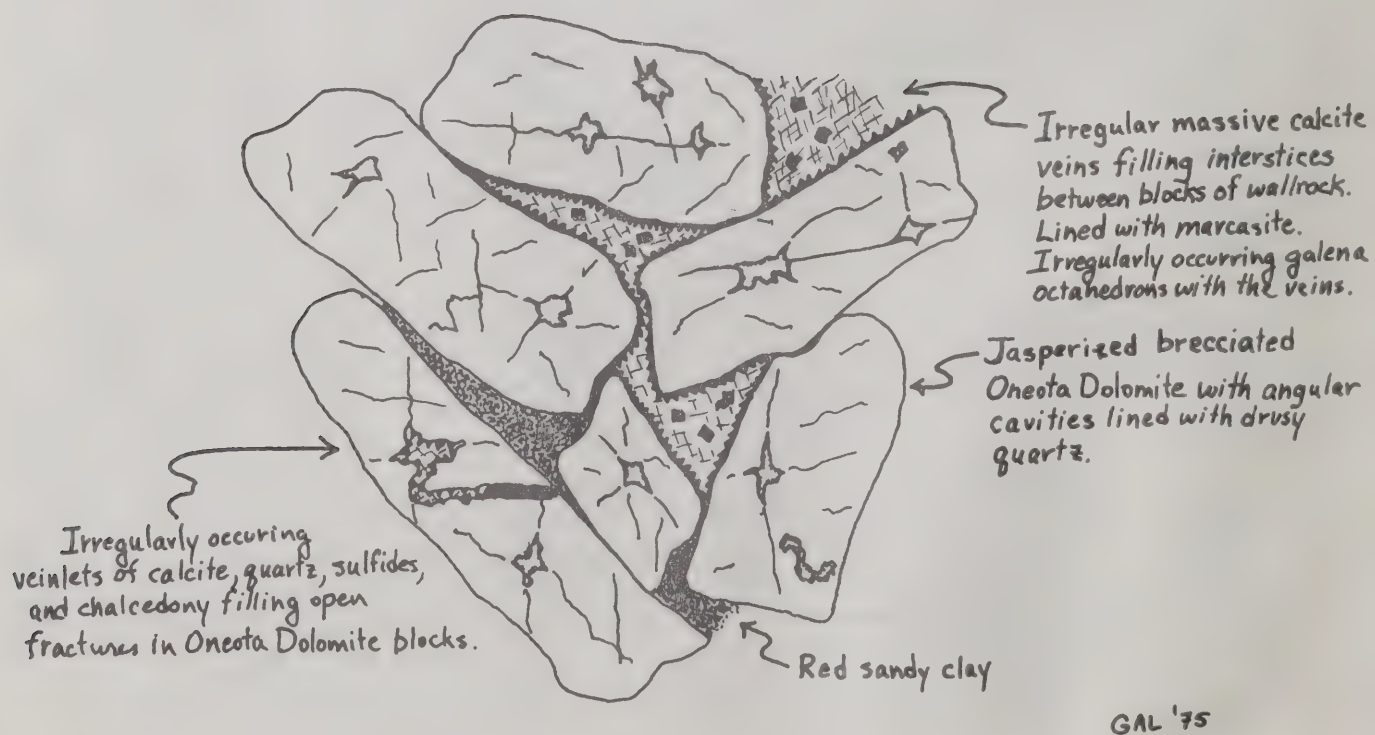 Irregular massive calcite
veins filling interstices
between blocks of wallrock.
Lined with marcasite.
Irregularly occurring galena
octahedrons with the veins.
Jasperized brecciated
Oneota Dolomite with angular
cavities lined with drusy
quartz.
Irregularly occuring
veinlets of calcite, quartz, sulfides,
and chalcedony filling open
fractures in Oneota Dolomite blocks.
Red sandy clay
GAL '75